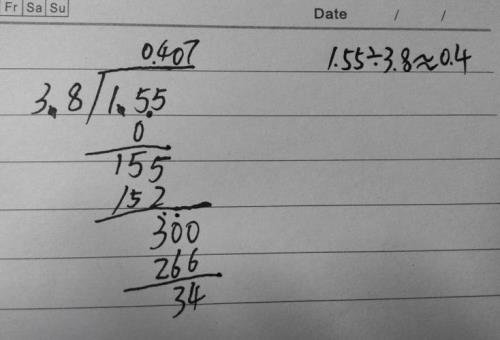 Fr Sa Su
Date / /
0.407
1.55÷3.8≈0.4
3.8 1.55
0
155
152
300
266
34